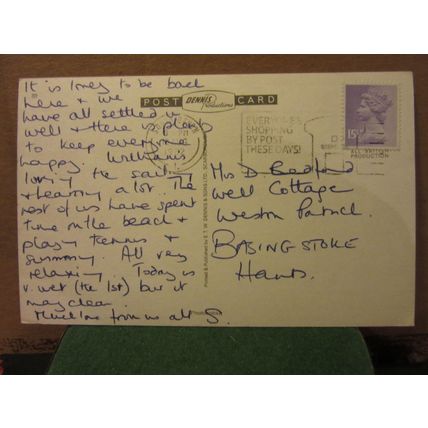 It is lovely to be back
here & we
have all settled in
well & there is plenty
to keep everyone
happy. William is
loving the sailing
& learning a lot. The
rest of us have spent
time on the beach &
playing tennis &
swimming. All very
relaxing. Today is
v. wet (the 1st) but it
may clear.
Much love from us all S.
POST DENNIS Productions CARD
Printed & Published by E. T. W. DENNIS & SONS LTD., SCARBOROUGH
EVERYONE'S
SHOPPING
BY POST
THESE DAYS!
15
ALL BRITISH
PRODUCTION
Mrs D Bedford
Well Cottage
Weston Patrick
BASINGSTOKE
Hants.